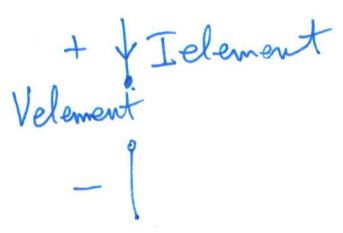 + Ielement
Velement
−